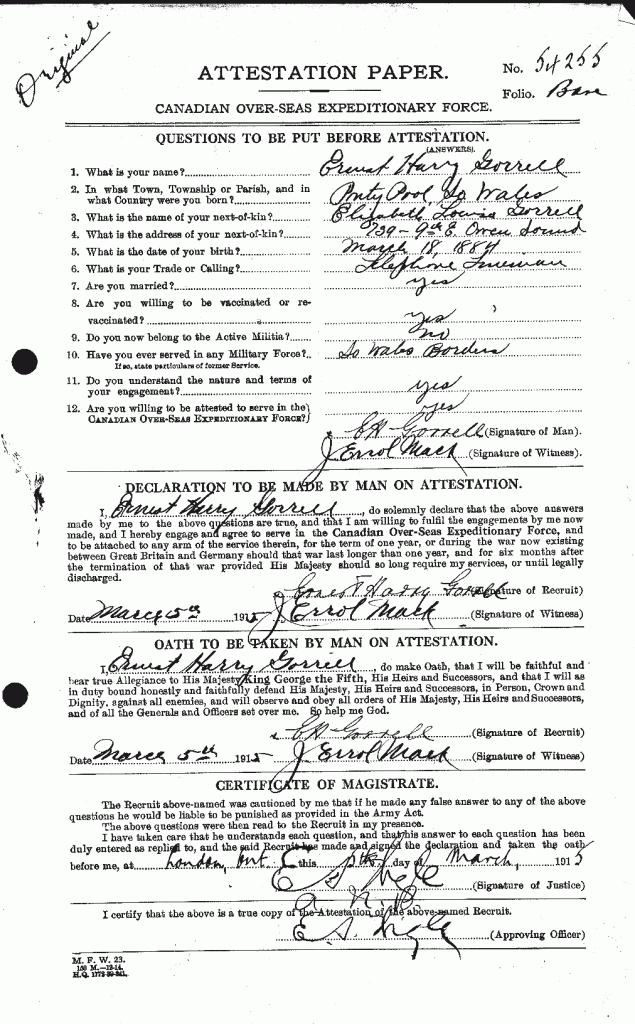 Original
ATTESTATION PAPER.
No. 54255
Folio. Base
CANADIAN OVER-SEAS EXPEDITIONARY FORCE.
QUESTIONS TO BE PUT BEFORE ATTESTATION.
(ANSWERS).
1. What is your name? Ernest Harry Gorrell
2. In what Town, Township or Parish, and in
what Country were you born? Ponty Pool, So Wales
3. What is the name of your next-of-kin? Elizabeth Louisa Gorrell
4. What is the address of your next-of-kin? 729 - 9th E Owen Sound
5. What is the date of your birth? March 18, 1884
6. What is your Trade or Calling? Telephone Lineman
7. Are you married? yes
8. Are you willing to be vaccinated or re-
vaccinated? yes
9. Do you now belong to the Active Militia? no
10. Have you ever served in any Military Force? So Wales Borders
If so, state particulars of former Service.
11. Do you understand the nature and terms of
your engagement? yes
12. Are you willing to be attested to serve in the
CANADIAN OVER-SEAS EXPEDITIONARY FORCE? yes
EH Gorrell (Signature of Man).
J Errol Mack (Signature of Witness).
DECLARATION TO BE MADE BY MAN ON ATTESTATION.
I, Ernest Harry Gorrell, do solemnly declare that the above answers
made by me to the above questions are true, and that I am willing to fulfil the engagements by me now
made, and I hereby engage and agree to serve in the Canadian Over-Seas Expeditionary Force, and
to be attached to any arm of the service therein, for the term of one year, or during the war now existing
between Great Britain and Germany should that war last longer than one year, and for six months after
the termination of that war provided His Majesty should so long require my services, or until legally
discharged.
Ernest Harry Gorrell (Signature of Recruit)
Date March 5th 1915 J Errol Mack (Signature of Witness)
OATH TO BE TAKEN BY MAN ON ATTESTATION.
I, Ernest Harry Gorrell, do make Oath, that I will be faithful and
bear true Allegiance to His Majesty King George the Fifth, His Heirs and Successors, and that I will as
in duty bound honestly and faithfully defend His Majesty, His Heirs and Successors, in Person, Crown and
Dignity, against all enemies, and will observe and obey all orders of His Majesty, His Heirs and Successors,
and of all the Generals and Officers set over me. So help me God.
EH Gorrell (Signature of Recruit)
Date March 5th 1915 J Errol Mack (Signature of Witness)
CERTIFICATE OF MAGISTRATE.
The Recruit above-named was cautioned by me that if he made any false answer to any of the above
questions he would be liable to be punished as provided in the Army Act.
The above questions were then read to the Recruit in my presence.
I have taken care that he understands each question, and that his answer to each question has been
duly entered as replied to, and the said Recruit has made and signed the declaration and taken the oath
before me, at London, Ont this 5th day of March, 1915
(Signature of Justice)
I certify that the above is a true copy of the Attestation of the above-named Recruit.
(Approving Officer)
M. F. W. 23.
150 M.—12-14.
H.Q. 1772-39-841.